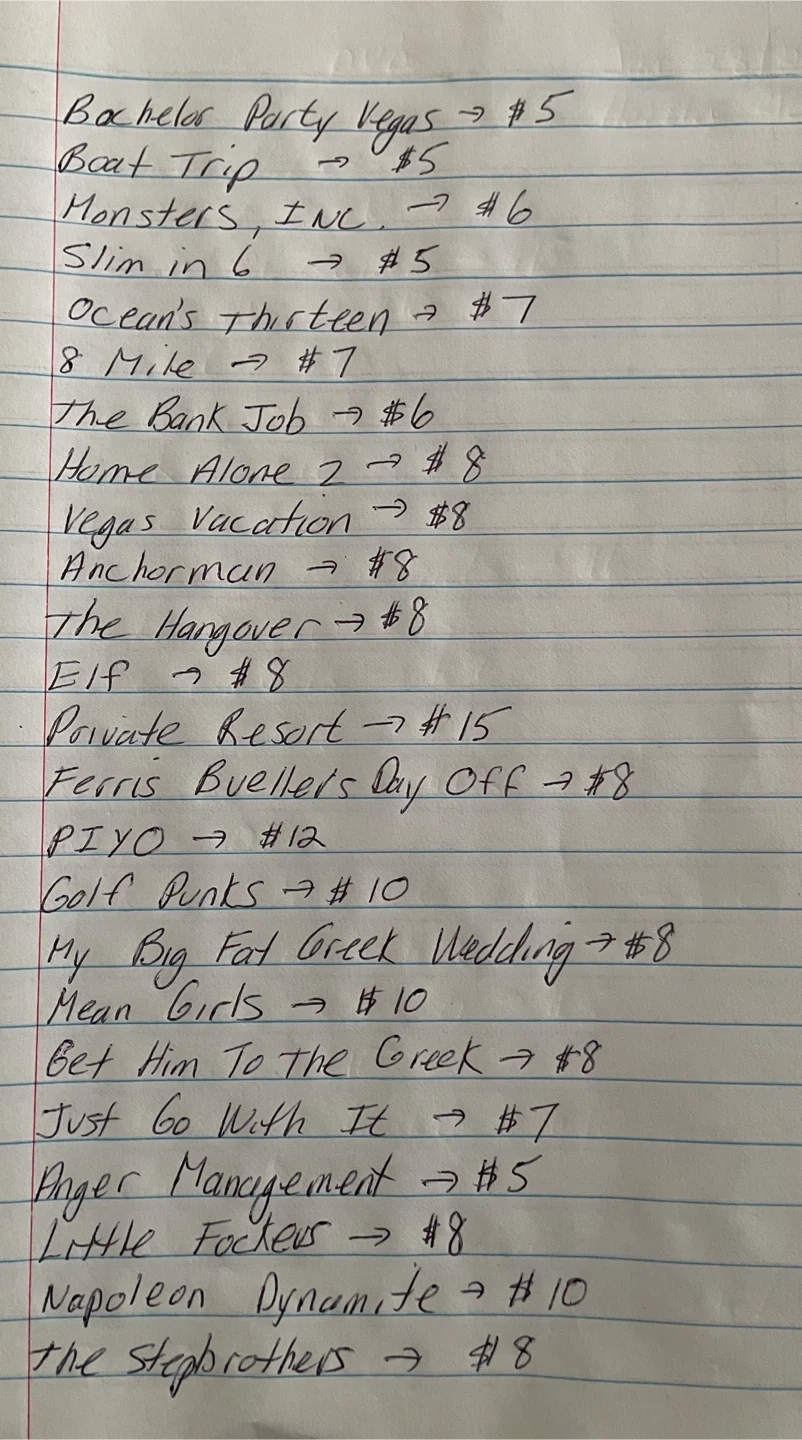 Bachelor Party Vegas → $5
Boat Trip → $5
Monsters, INC. → $6
Slim in 6 → $5
Ocean's Thirteen → $7
8 Mile → $7
The Bank Job → $6
Home Alone 2 → $8
Vegas Vacation → $8
Anchorman → $8
The Hangover → $8
Elf → $8
Private Resort → $15
Ferris Bueller's Day Off → $8
PIYO → $12
Golf Punks → $10
My Big Fat Greek Wedding → $8
Mean Girls → $10
Get Him To The Greek → $8
Just Go With It → $7
Anger Management → $5
Little Fockers → $8
Napoleon Dynamite → $10
The Stepbrothers → $8